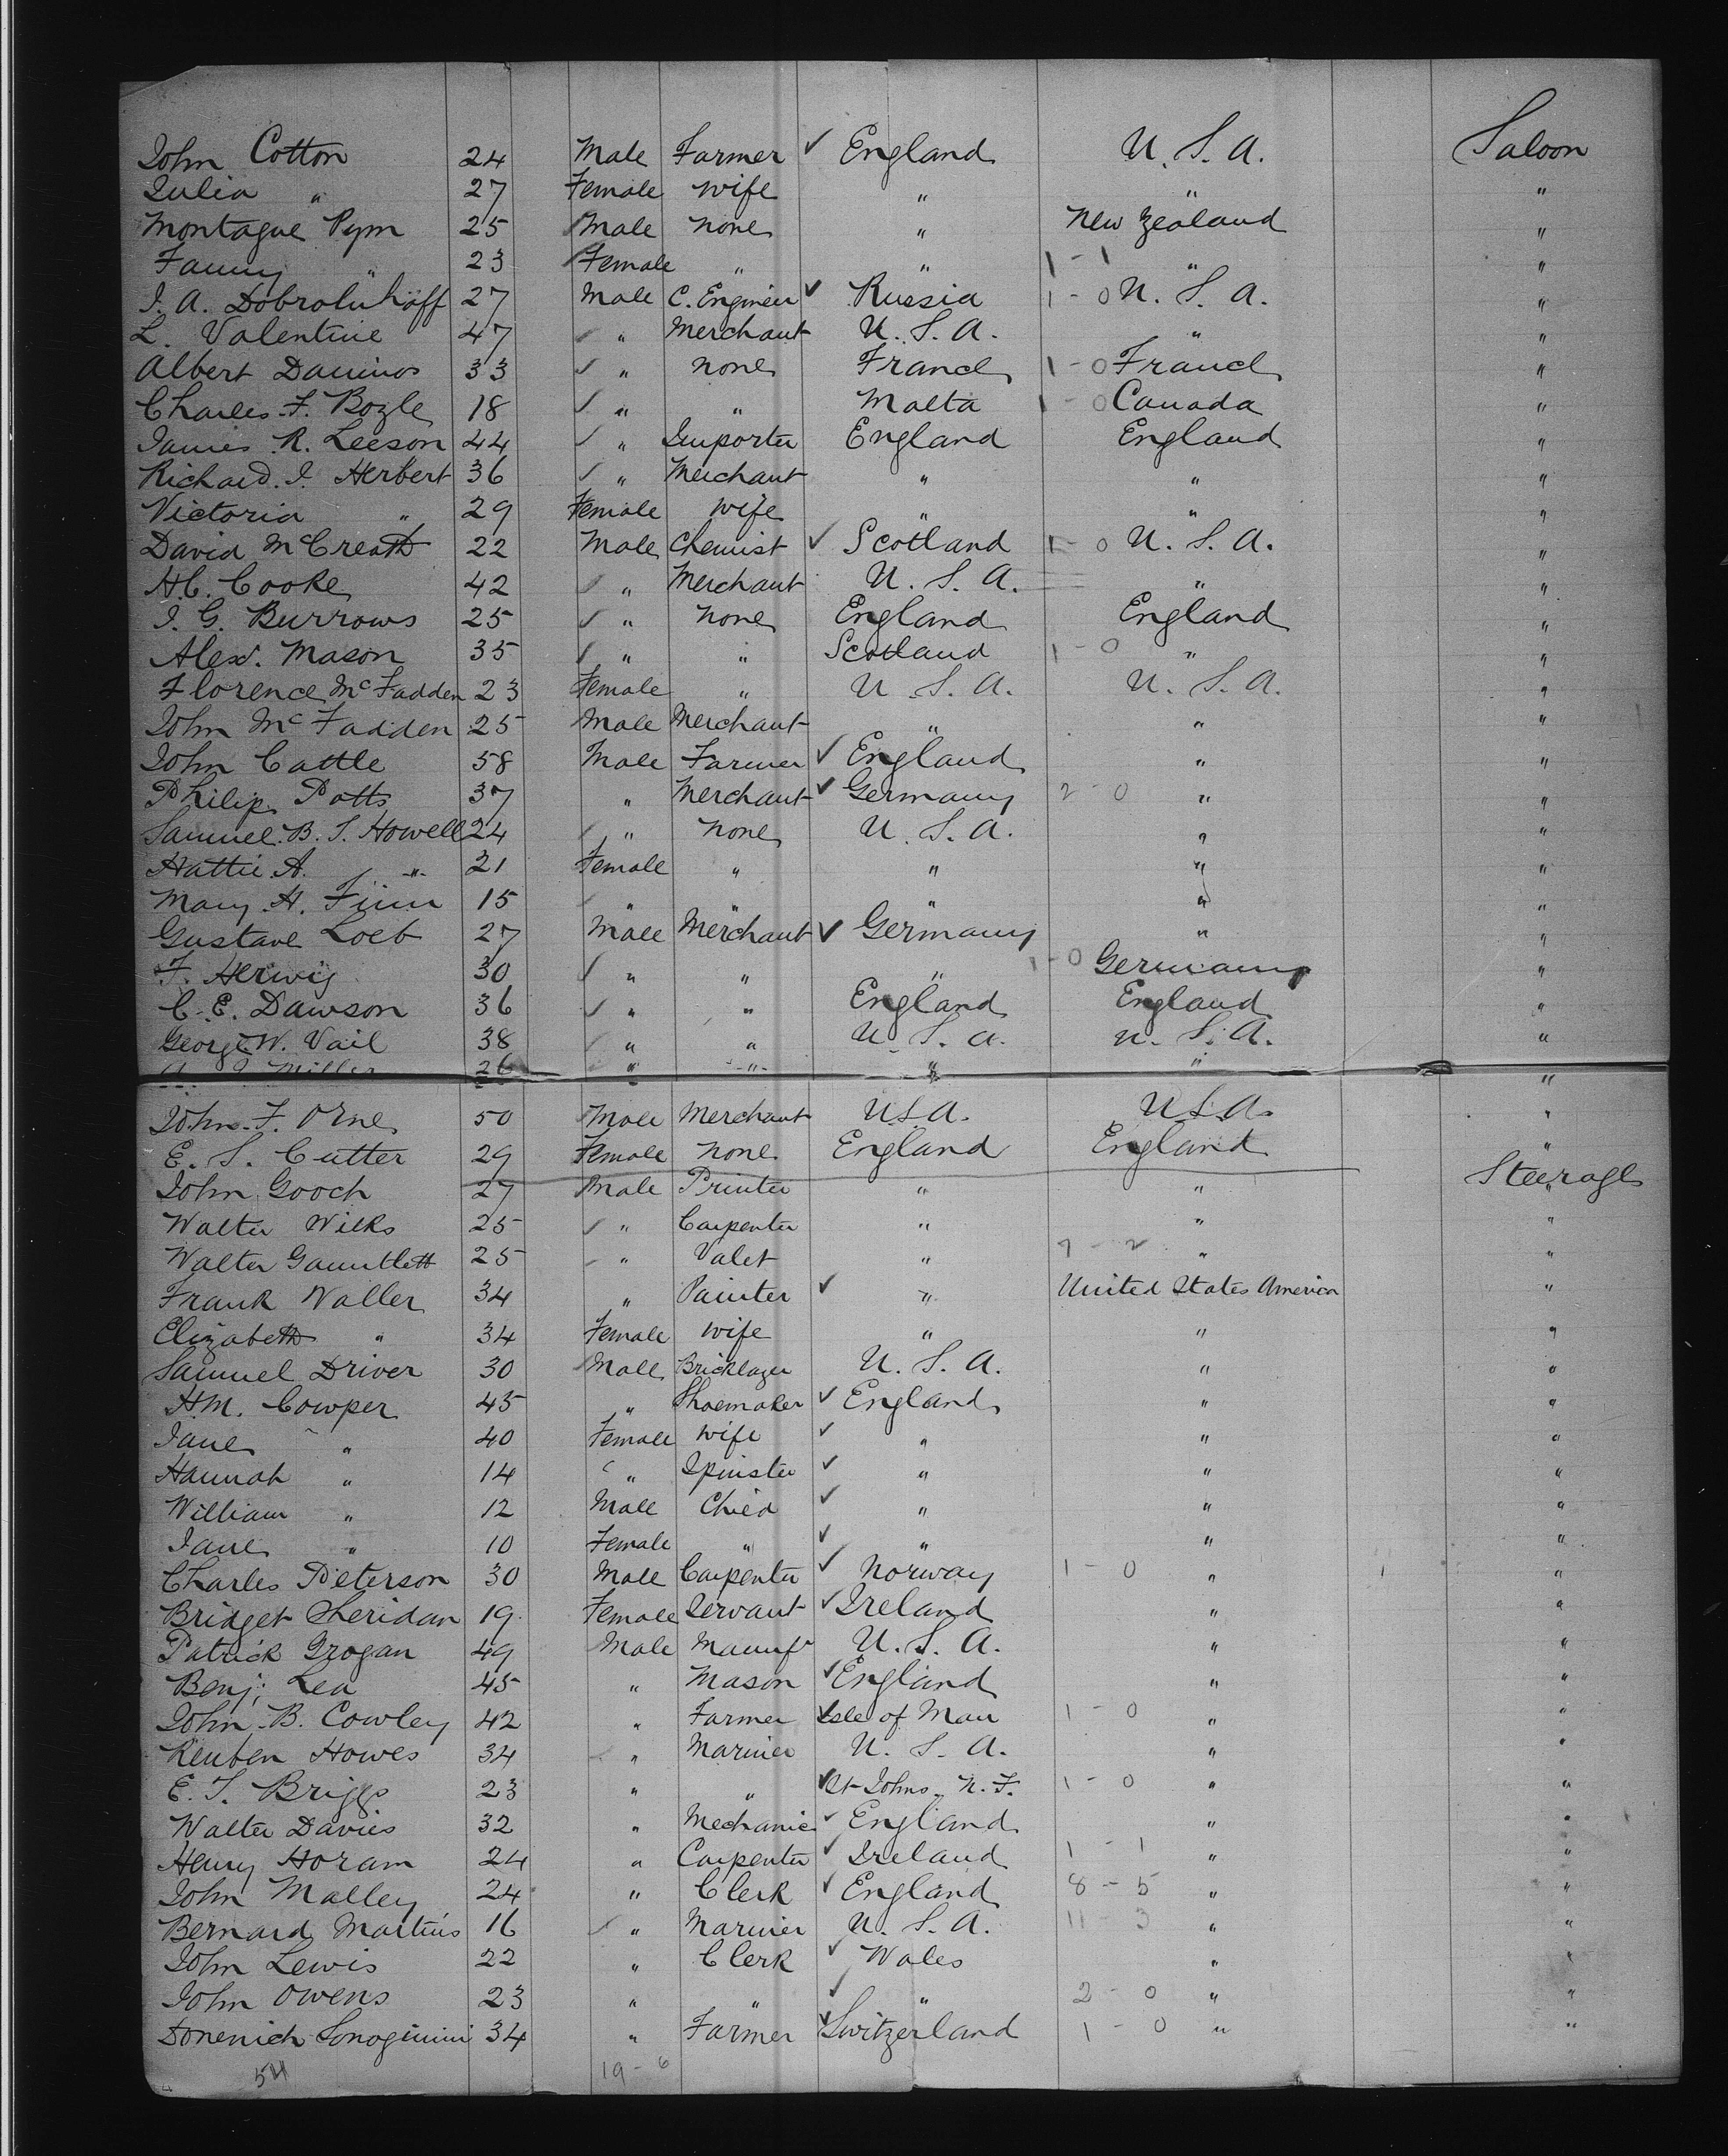 John Cotton 24 Male Farmer ✓ England U. S. A. Saloon
Julia " 27 Female wife " " "
Montague Pym 25 Male none " New Zealand "
Fanny " 23 Female " " 1 - 1 " "
J. A. Dobroluhoff 27 Male C. Engineer ✓ Russia 1 - 0 U. S. A. "
L. Valentine 47 " Merchant U. S. A. " "
Albert Daninos 33 " none France 1 - 0 France "
Charles F. Bogle 18 " " Malta 1 - 0 Canada "
James R. Leeson 44 " Importer England England "
Richard J. Herbert 36 " Merchant " " "
Victoria " 29 Female wife " " "
David McCreath 22 Male Chemist ✓ Scotland 1 - 0 U. S. A. "
H.C. Cooke 42 " Merchant U. S. A. " "
J. G. Burrows 25 " none England England "
Alexr. Mason 35 " " Scotland 1 - 0 " "
Florence McFadden 23 Female " U. S. A. U. S. A. "
John McFadden 25 Male Merchant " " "
John Cattle 58 Male Farmer ✓ England " "
Philip Potts 37 " Merchant ✓ Germany 2 - 0 " "
Samuel B. S. Howell 24 " none U. S. A. " "
Hattie A. " 21 Female " " " "
Mary H. Finn 15 " " " " "
Gustave Loeb 27 Male Merchant ✓ Germany " "
F. Herwig 30 " " " 1 - 0 Germany "
C. E. Dawson 36 " " England England "
George W. Vail 38 " " U. S. A. U. S. A. "
Miller 26 " " " " "
John F. Orne 50 Male Merchant U.S.A. U.S.A. "
E. S. Cutter 29 Female none England England "
John Gooch 27 Male Printer " " Steerage
Walter Wilks 25 " Carpenter " " "
Walter Gauntlett 25 " Valet " 7 - 2 " "
Frank Waller 34 " Painter ✓ " United States America "
Elizabeth " 34 Female wife " " "
Samuel Driver 30 Male Bricklayer U. S. A. " "
H.M. Cowper 45 " Shoemaker ✓ England " "
Jane " 40 Female wife ✓ " " "
Hannah " 14 " Spinster ✓ " " "
William " 12 Male Child ✓ " " "
Jane " 10 Female " ✓ " " "
Charles Peterson 30 Male Carpenter ✓ Norway 1 - 0 " "
Bridget Sheridan 19 Female Servant ✓ Ireland " "
Patrick Grogan 49 Male Manufr U. S. A. " "
Benj: Lea 45 " Mason ✓ England " "
John B. Cowley 42 " Farmer ✓ Isle of Man 1 - 0 " "
Reuben Howes 34 " Mariner U. S. A. " "
E. T. Briggs 23 " " ✓ St Johns. N. F. 1 - 0 " "
Walter Davies 32 " Mechanic ✓ England " "
Henry Horam 24 " Carpenter ✓ Ireland 1 - 1 " "
John Malley 24 " Clerk ✓ England 8 - 5 " "
Bernard Martins 16 " Mariner U. S. A. 11 - 3 " "
John Lewis 22 " Clerk ✓ Wales " "
John Owens 23 " " ✓ " 2 - 0 " "
Donenich 34 " Farmer ✓ Switzerland 1 - 0 " "
54 19 - 6